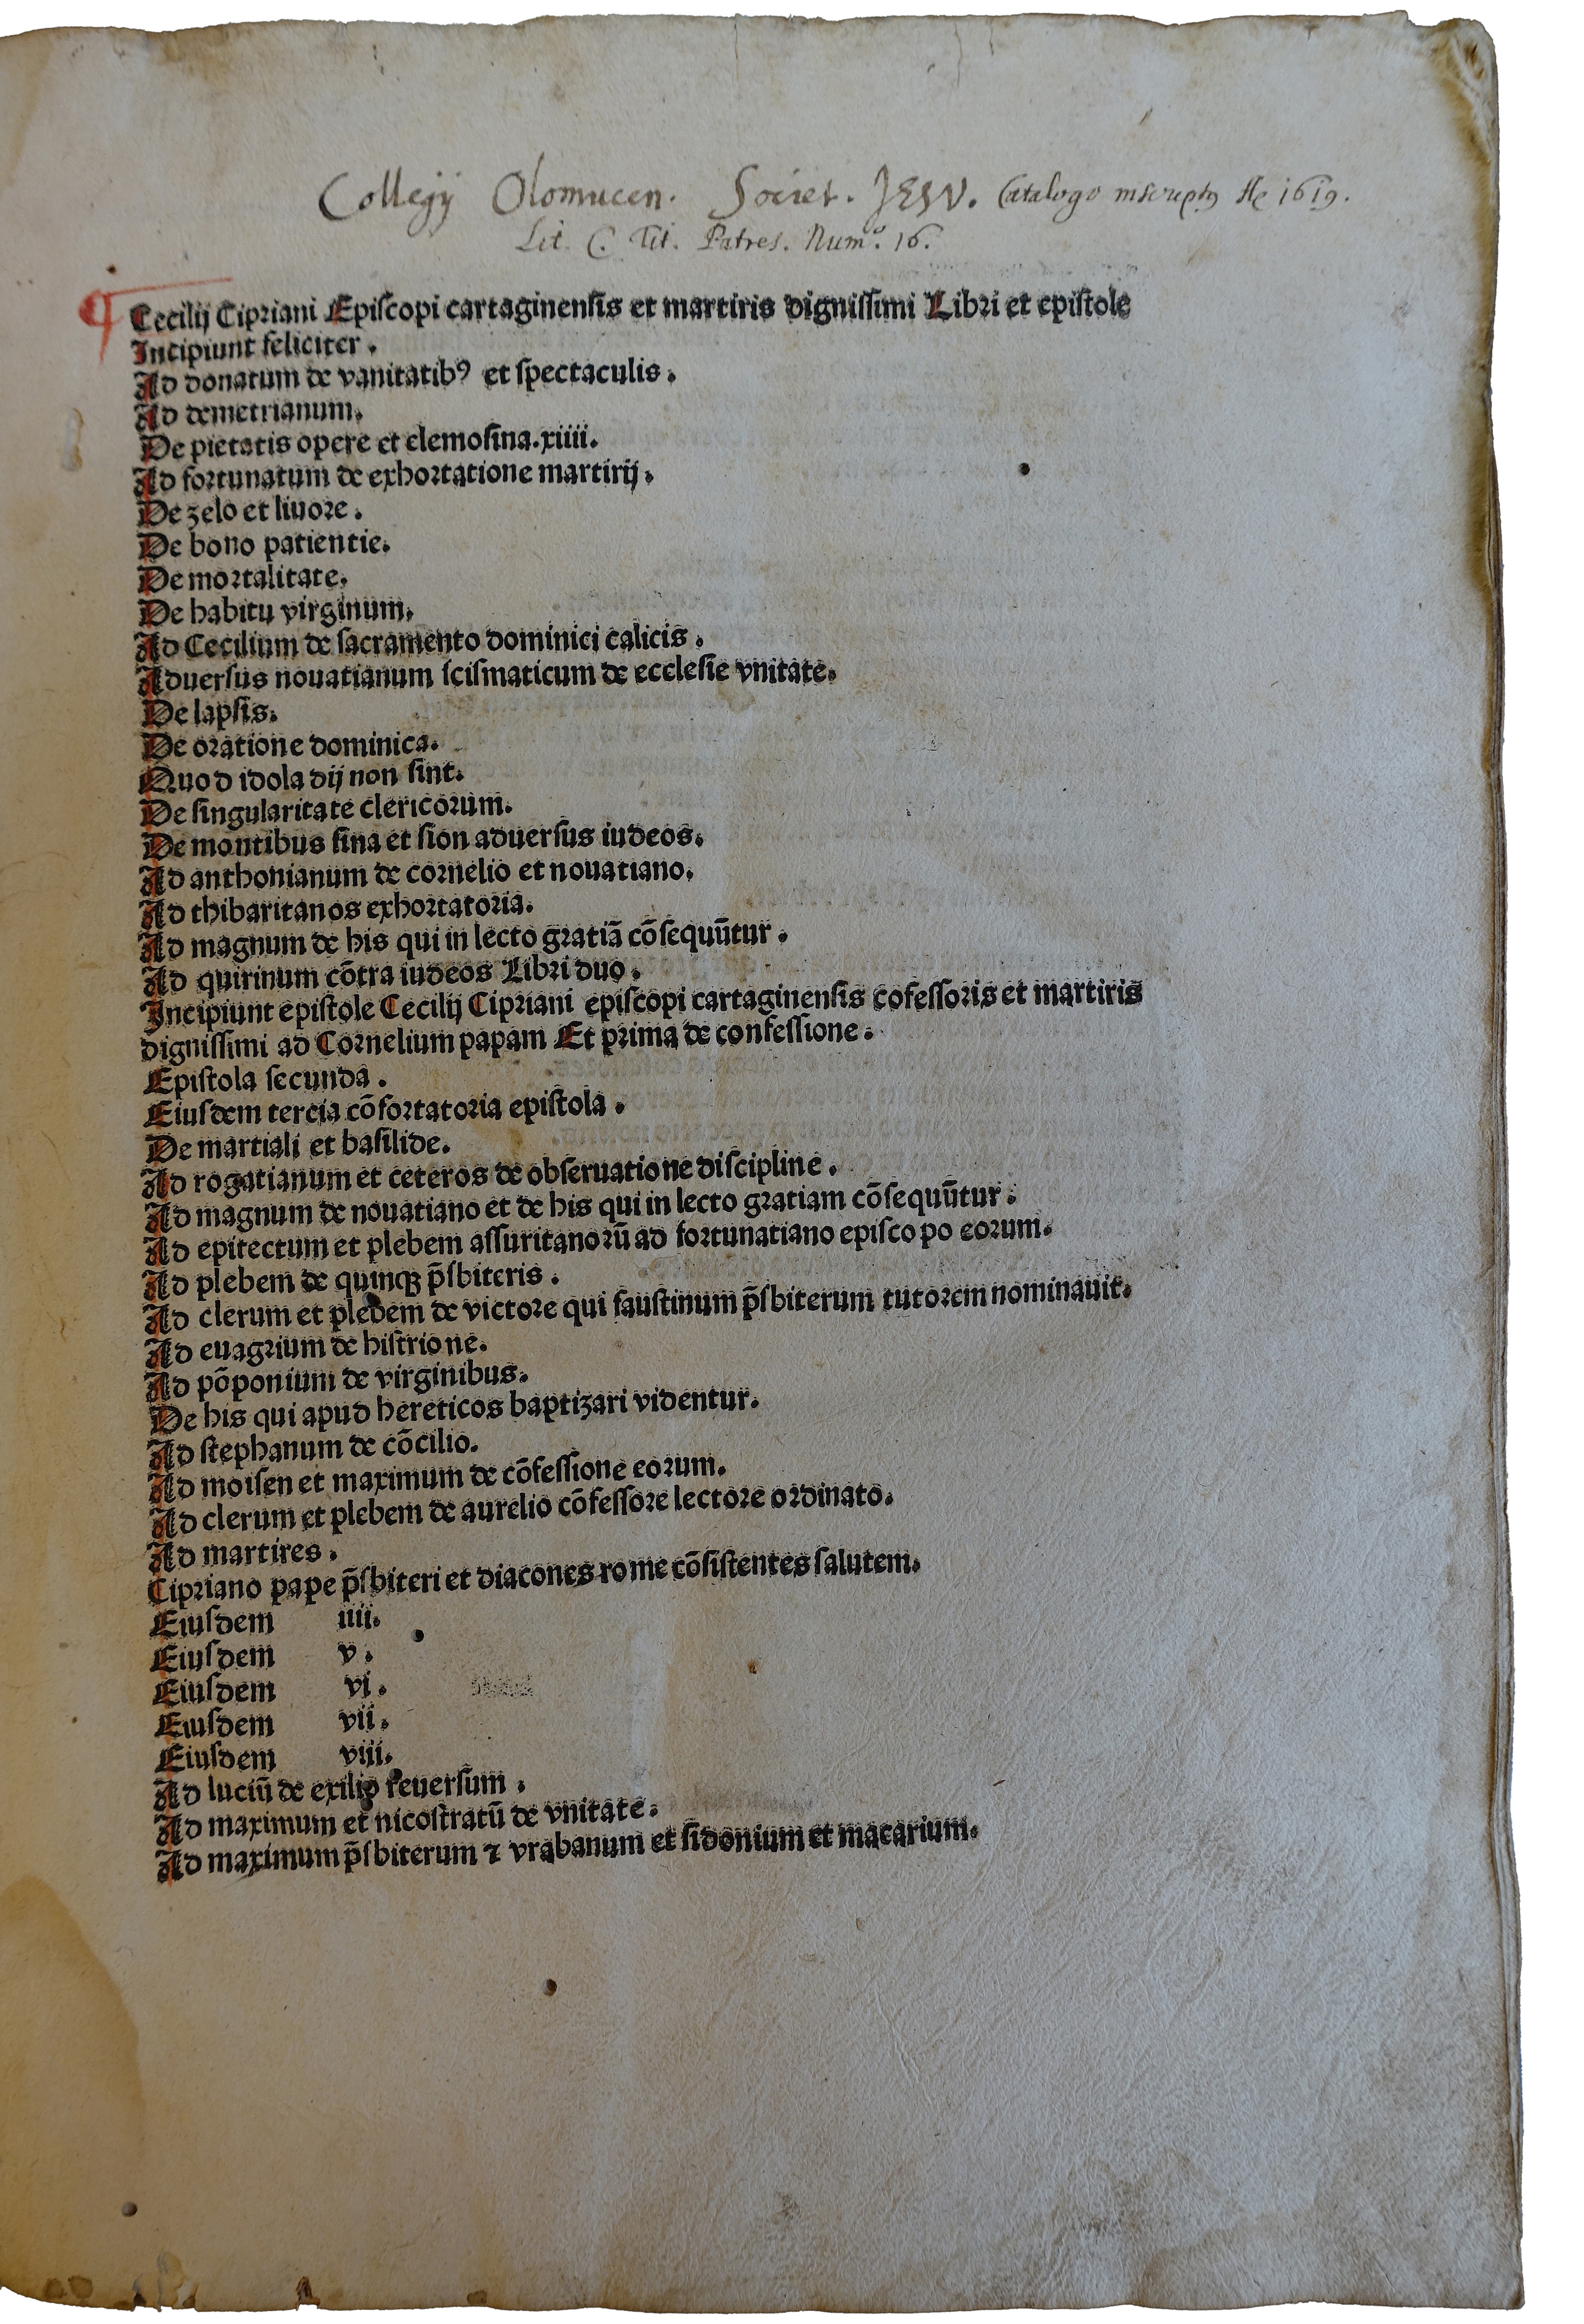 Collegij Olomucen. Societ. JESV. Catalogo inscriptꝰ 1619.
Lit. C. Tit. Patres. Num.º 16.
Cecilij Cipriani Epiſcopi cartaginenſis et martiris digniſſimi Libri et epiſtole
Incipiunt feliciter.
Ad donatum de vanitatibꝰ et ſpectaculis.
Ad demetrianum.
De pietatis opere et elemoſina.xiiii.
Ad fortunatum de exhortatione martirij.
De zelo et liuore.
De bono patientie.
De mortalitate.
De habitu virginum.
Ad Cecilium de ſacramento dominici calicis.
Aduerſus nouatianum ſciſmaticum de eccleſie vnitate.
De lapſis.
De oratione dominica.
Quod idola dij non ſint.
De ſingularitate clericorum.
De montibus ſina et ſion aduerſus iudeos.
Ad anthonianum de cornelio et nouatiano.
Ad thibaritanos exhortatoria.
Ad magnum de his qui in lecto gratiā cōſequūtur.
Ad quirinum cōtra iudeos Libri duo.
Incipiunt epiſtole Cecilij Cipriani epiſcopi cartaginenſis cofeſſoris et martiris
digniſſimi ad Cornelium papam Et prima de confeſſione.
Epiſtola ſecunda.
Eiuſdem tercia cōfortatoria epiſtola.
De martiali et baſilide.
Ad rogatianum et ceteros de obſeruatione diſcipline.
Ad magnum de nouatiano et de his qui in lecto gratiam cōſequūtur.
Ad epitectum et plebem aſſuritanorū ad fortunatiano epiſco po eorum.
Ad plebem de quinqꝫ p̄ſbiteris.
Ad clerum et plebem de victore qui fauſtinum p̄ſbiterum tutorem nominauit.
Ad euagrium de hiſtrione.
Ad pōponium de virginibus.
De his qui apud hereticos baptizari videntur.
Ad ſtephanum de cōcilio.
Ad moiſen et maximum de cōfeſſione eorum.
Ad clerum et plebem de aurelio cōfeſſore lectore ordinato.
Ad martires.
Cipriano pape p̄ſbiteri et diacones rome cōſiſtentes ſalutem.
Eiuſdem iiii.
Eiuſdem v.
Eiuſdem vi.
Eiuſdem vii.
Eiuſdem viii.
Ad luciū de exilio reuerſum.
Ad maximum et nicoſtratū de vnitate.
Ad maximum p̄ſbiterum ⁊ vrabanum et ſidonium et macarium.